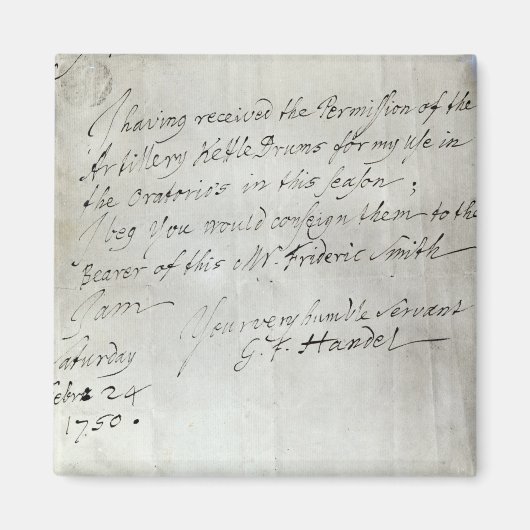 I having received the Permission of the
Artillery Kettle Drums for my use in
the Oratorio's in this season;
I beg You would consign them to the
Bearer of this Mr. Frideric Smith
I am
Your very humble Servant
G. F. Handel
Saturday
Febr 24
1750.